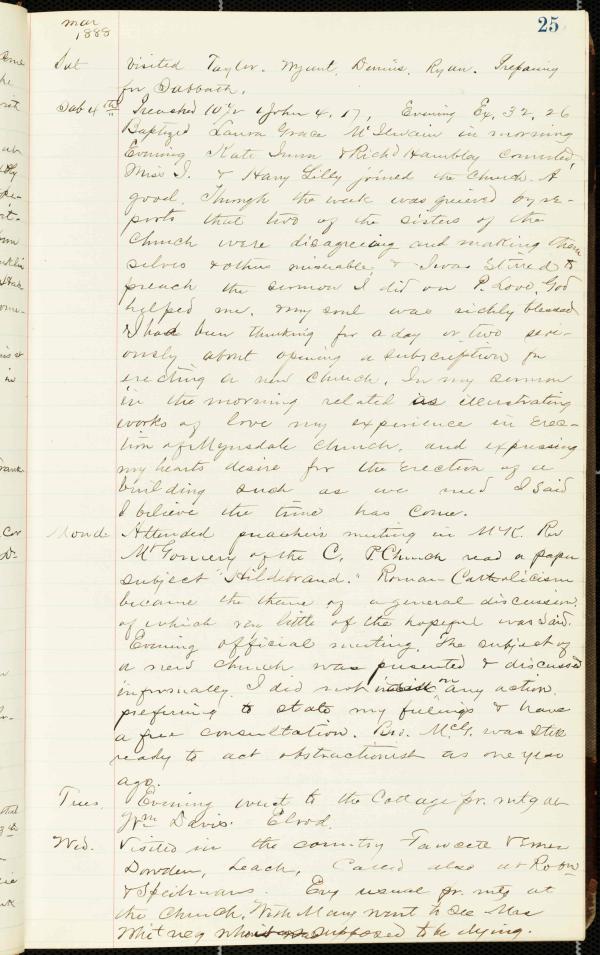 Mar 1888
25
Sat Visited Taylor. Wyant, Dennis, Ryan. Preparing
for Sabbath.
Sab 4th Preached 10½ 1 John 4, 17, Evening Ex. 32, 26
Baptized Laura Grace McIlwain in morning
Evening Kate & Richd Hambley converted,
Miss I. & Harry Lilly joined the Church. A
good. Though the week was grieved by re-
ports that two of the sisters of the
Church were disagreeing and making them
selves & others miserable & I was stirred to
preach the sermon I did on P. Love, God
helped me. My soul was richly blessed
& I had been thinking for a day or two seri-
ously about opening a subscription for
erecting a new church. In my sermon
in the morning related as illustrating
works of love my experience in erec-
tion of church. and expressing
my hearts desire for the erection of a
building such as we need I said
I believe the time has come.
Mond. Attended preachers meeting in McK. Rev
McGonnery of the C. P. Church read a paper
subject "Hildebrand." Roman Catholicism
became the theme of a general discussion.
of which very little of the hopeful was said.
Evening official meeting. The subject of
a new church was presented & discussed
informally. I did not insist on any action.
preferring to state my feelings & have
a free consultation. Bro. McG. was still
ready to act obstructionist as one year
ago.
Tues. Evening went to the Cottage pr. mtg at
Wm Davis. Elrod.
Wed. Visited in the country Fawcett &
Dowden, Leach, Called also at
& Speilmans. Evg usual pr. mtg at
the Church. With Mary went to see Mae
Whitney who supposed to be dying.